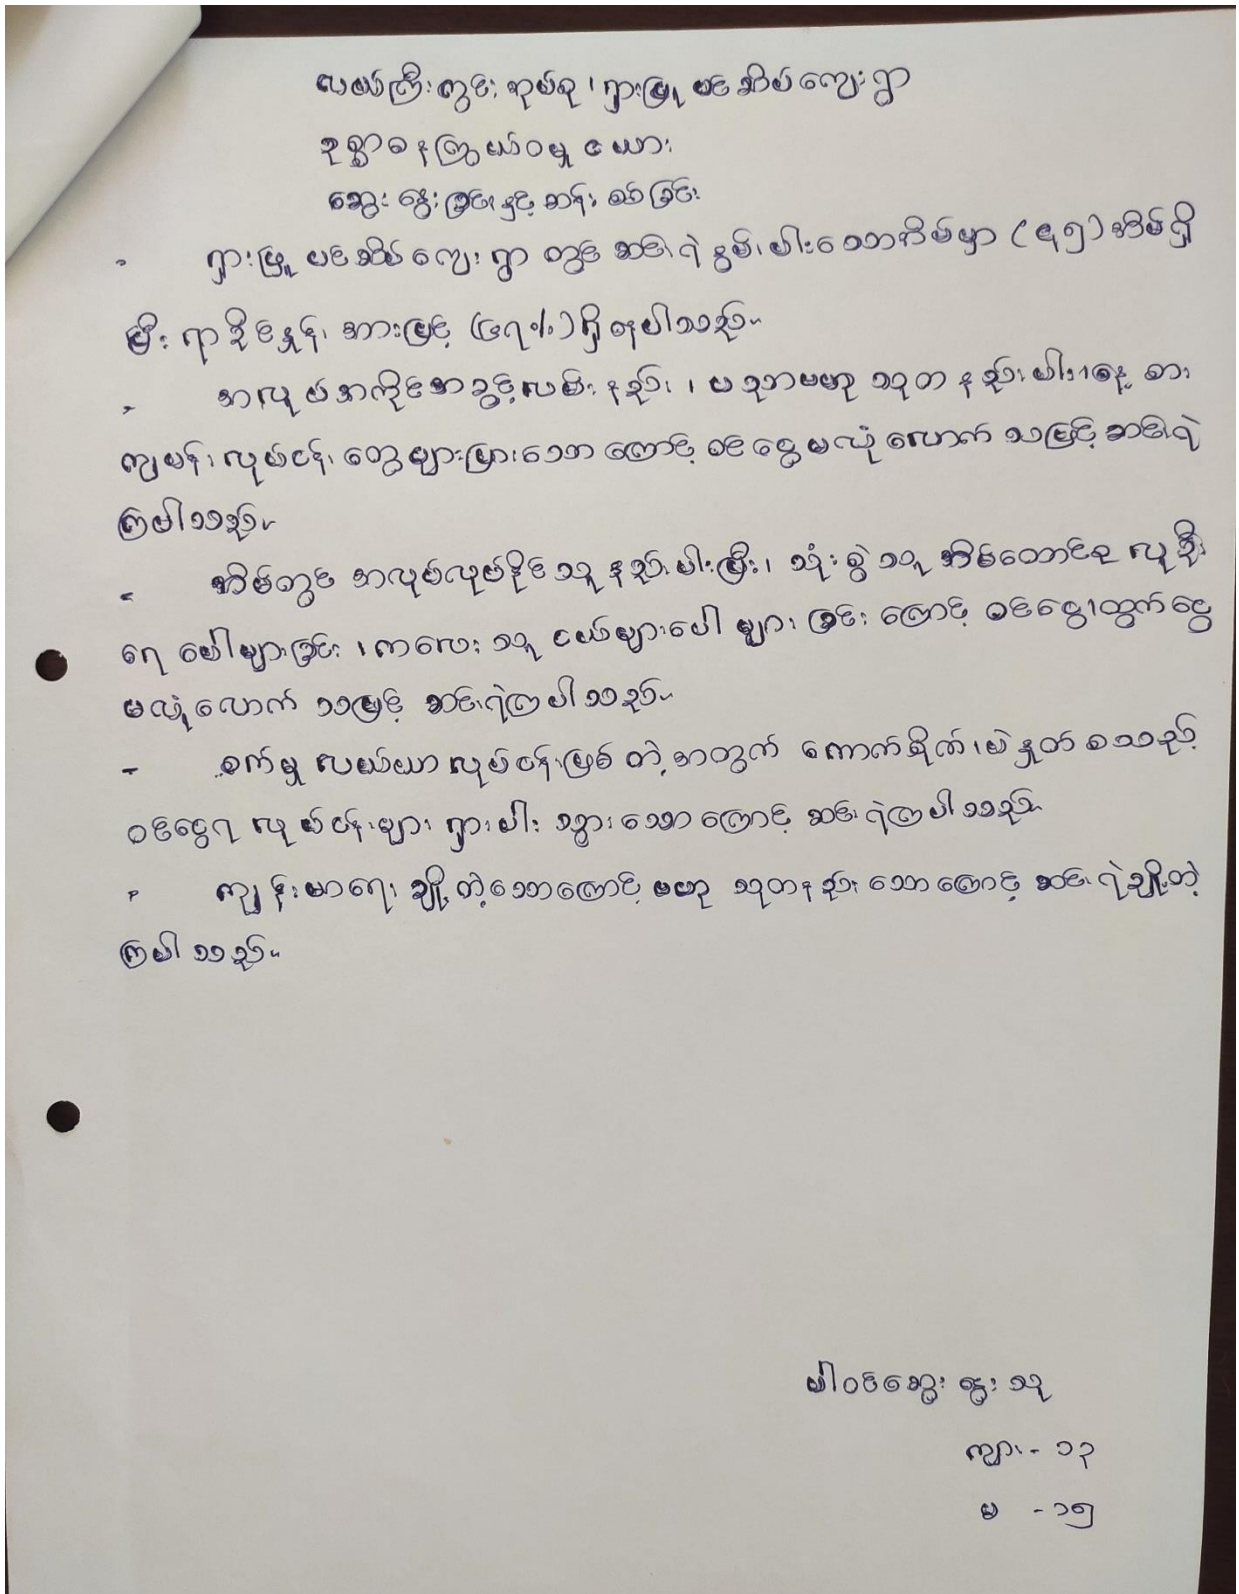 လယ်ကြီးကွင်း အုပ်စု ၊ ရှားဖြူပင်ဆိပ်ကျေးရွာ
ဥစ္စာဓနကြွယ်ဝမှု ယေား
ဆွေးနွေးခြင်းနှင့် ဆန်းစစ်ခြင်း
- ရှားဖြူပင်ဆိပ်ကျေးရွာတွင် ဆင်းရဲနွမ်းပါးသောအိမ်မှာ (၅၅) အိမ်ရှိ
ပြီး ရာခိုင်နှုန်း အားဖြင့် (၄၇%) ရှိနေပါသည်။
- အလုပ်အကိုင်အခွင့်လမ်းနည်း ၊ ပညာဗဟုသုတနည်းပါး၊ နေ့စား
ကျပန်းလုပ်ငန်းတွေများပြားသောကြောင့် ဝင်ငွေမလုံလောက်သဖြင့် ဆင်းရဲ
ကြပါသည်။
- အိမ်တွင် အလုပ်လုပ်နိုင်သူ နည်းပါးပြီး၊ သုံးစွဲသူ အိမ်ထောင်စု လူဦး
ရေ ပေါများခြင်း ၊ ကလေးသူငယ်များပေါများခြင်းကြောင့် ဝင်ငွေ၊ထွက်ငွေ
မလုံလောက်သဖြင့် ဆင်းရဲကြပါသည်။
- စက်မှုလယ်ယာလုပ်ငန်းဖြစ်တဲ့အတွက် ကောက်စိုက်၊ပဲနှုတ် စသည့်
ဝင်ငွေရလုပ်ငန်းများ ရှားပါးသွားသောကြောင့် ဆင်းရဲကြပါသည်။
- ကျန်းမာရေး ချို့တဲ့သောကြောင့် ဗဟုသုတနည်းသောကြောင့် ဆင်းရဲချို့တဲ့
ကြပါသည်။
ပါဝင်ဆွေးနွေးသူ
ကျား - ၁၃
မ - ၁၅